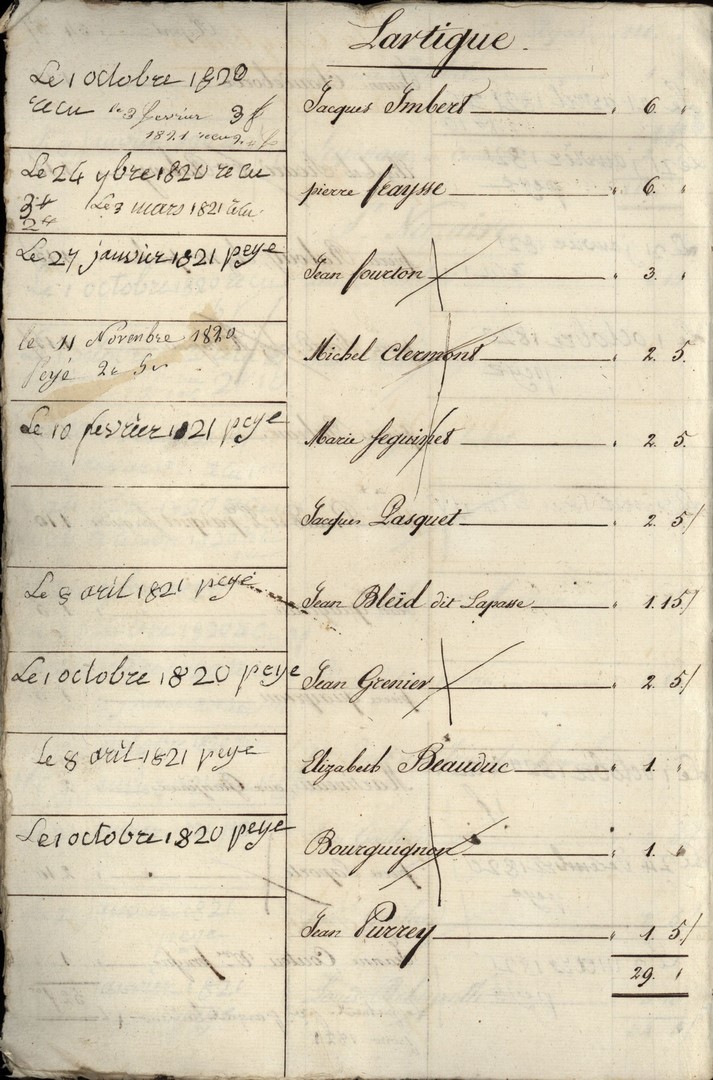 Lartigue.
Le 1 octobre 1820
recu le 3 fevrier 3 f
1821 recu 2
Jacques Imbert 6. "
Le 24 ybre 1820 recu
3 f Le 3 mars 1821 recu
2 f
pierre fraysse 6. "
Le 27 janvier 1821 peye
Jean fourton " 3. "
le 11 Novembre 1820
Peyé 2 5
Michel Clermont " 2. 5.
Le 10 fevrier 1821 peye
Marie Seguinet " 2. 5.
Jacques Pasquet " 2. 5/
Le 8 avril 1821 peyé
Jean Bleïd dit Lapasse " 1. 15/
Le 1 octobre 1820 peye
Jean Grenier " 2. 5/
Le 8 avril 1821 peye
Elizabeth Beauduc " 1. "
Le 1 octobre 1820 peye
Bourguignon " 1. "
Jean Purrey " 1. 5/
29. "